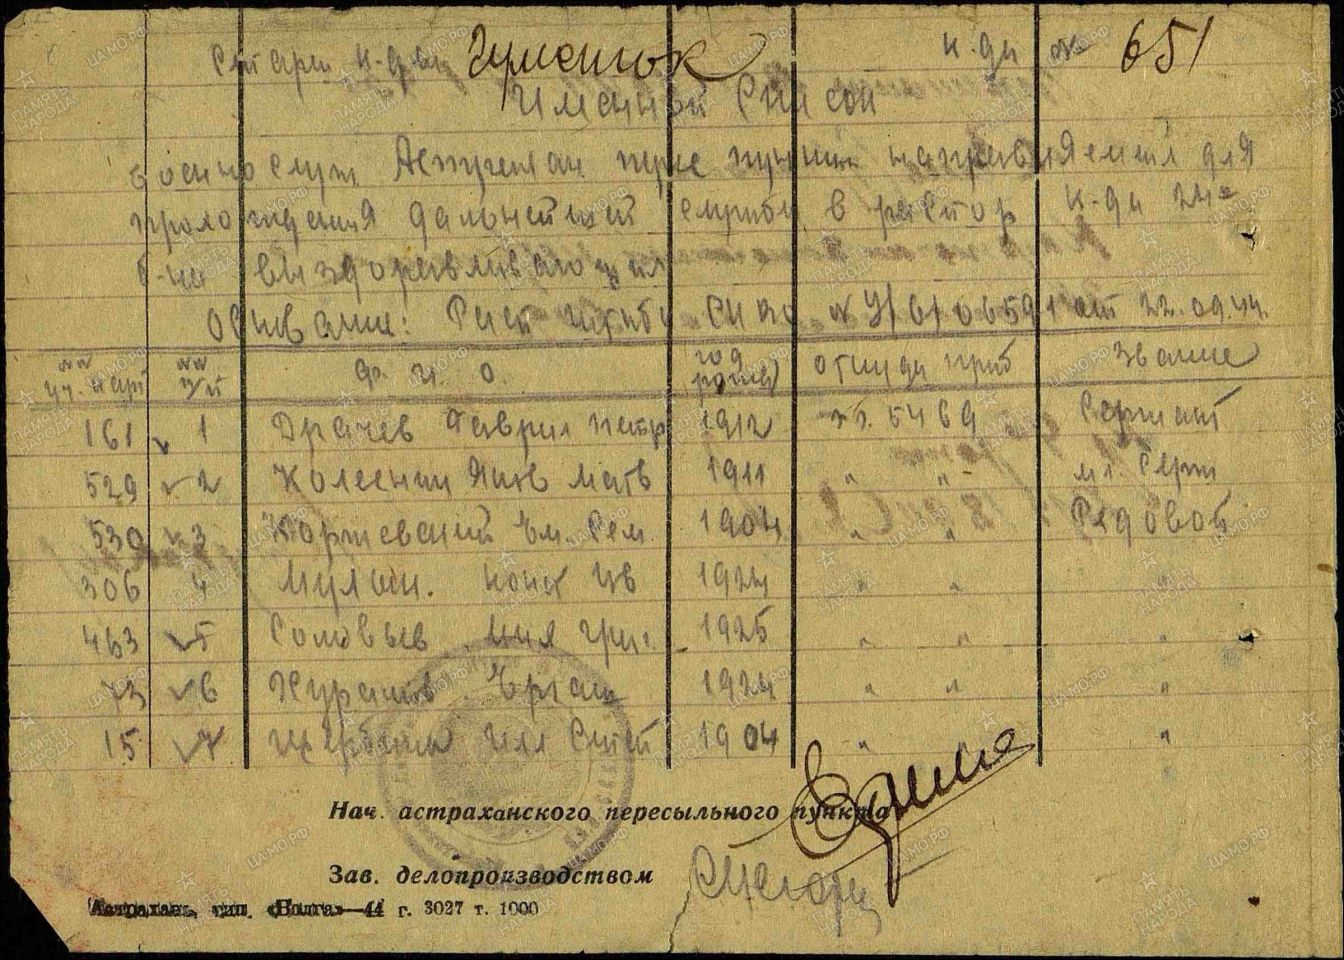 Старш к-ды Чуменюк к-ды № 651
Именной Список
военнослуж Астрахан перес пункта направляемых для
прохождения дальнейшей службы в распор к-ди 24го
б-на выздоравливающих
Основание: Расп штаба № У/6/0659 от 22.09.44.
№№ уч. карт №№ п/п Ф. И. О. год рожд откуда приб Звание
161 1 Драчев Гаврил Петр 1912 5469 Сержант
529 2 Колесник Яков Матв 1911 " " мл. Серж
530 3 Коржевский Ем. Сем. 1904 " " Рядовой
306 4 Конст Ив 1924 " " "
463 5 Соловьев Мих Григ. 1925 " " "
73 6 Эргаш 1924 " " "
15 7 Щербина 1904 " "
Нач. астраханского пересыльного пункта
Зав. делопроизводством
Астрахань, тип. «Волга»—44 г. 3027 т. 1000